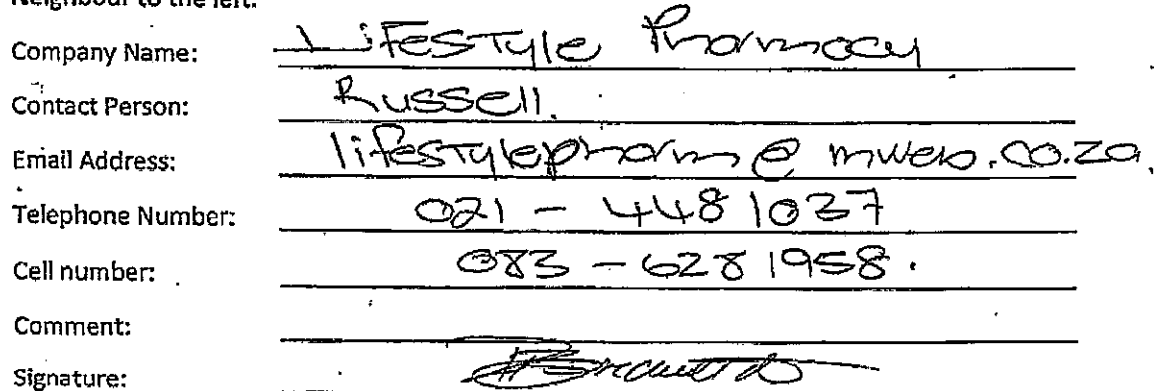 Neighbour to the left:
Company Name: LiFesTyle Pharmacy
Contact Person: Russell.
Email Address: lifesTylepharm@mweb.co.za
Telephone Number: 021 - 448 1037
Cell number: 083 - 628 1958.
Comment:
Signature: